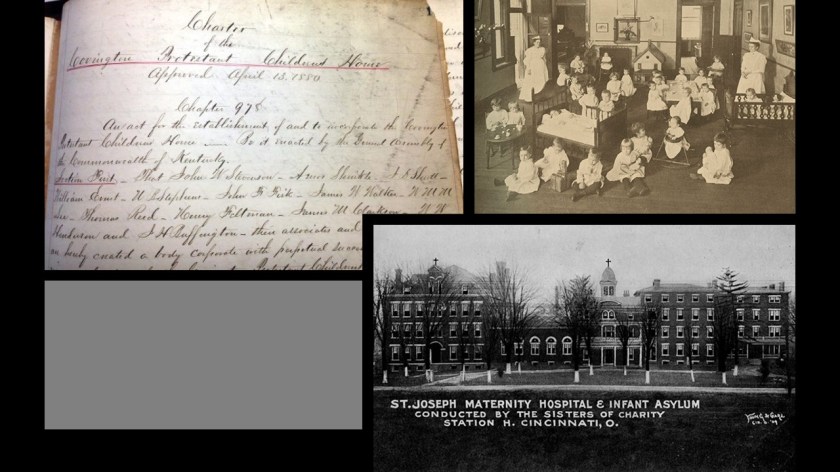 Charter
of the
Covington Protestant Childrens Home
Approved April 13. 1880
Chapter 978
An act for the establishment of and to incorporate the Covington
Protestant Childrens Home — Be it enacted by the General Assembly of
the Commonwealth of Kentucky.
Section First. That John W Stevenson — Amos Shinkle —
William Ernst — John F. Fisk — James W
Thomas Reed — Henry Feltman — James M Clarkson —
Henderson and J. H Buffington — their associates and
body corporate with perpetual
Protestant Childrens
ST. JOSEPH MATERNITY HOSPITAL & INFANT ASYLUM
CONDUCTED BY THE SISTERS OF CHARITY
STATION H. CINCINNATI, O.